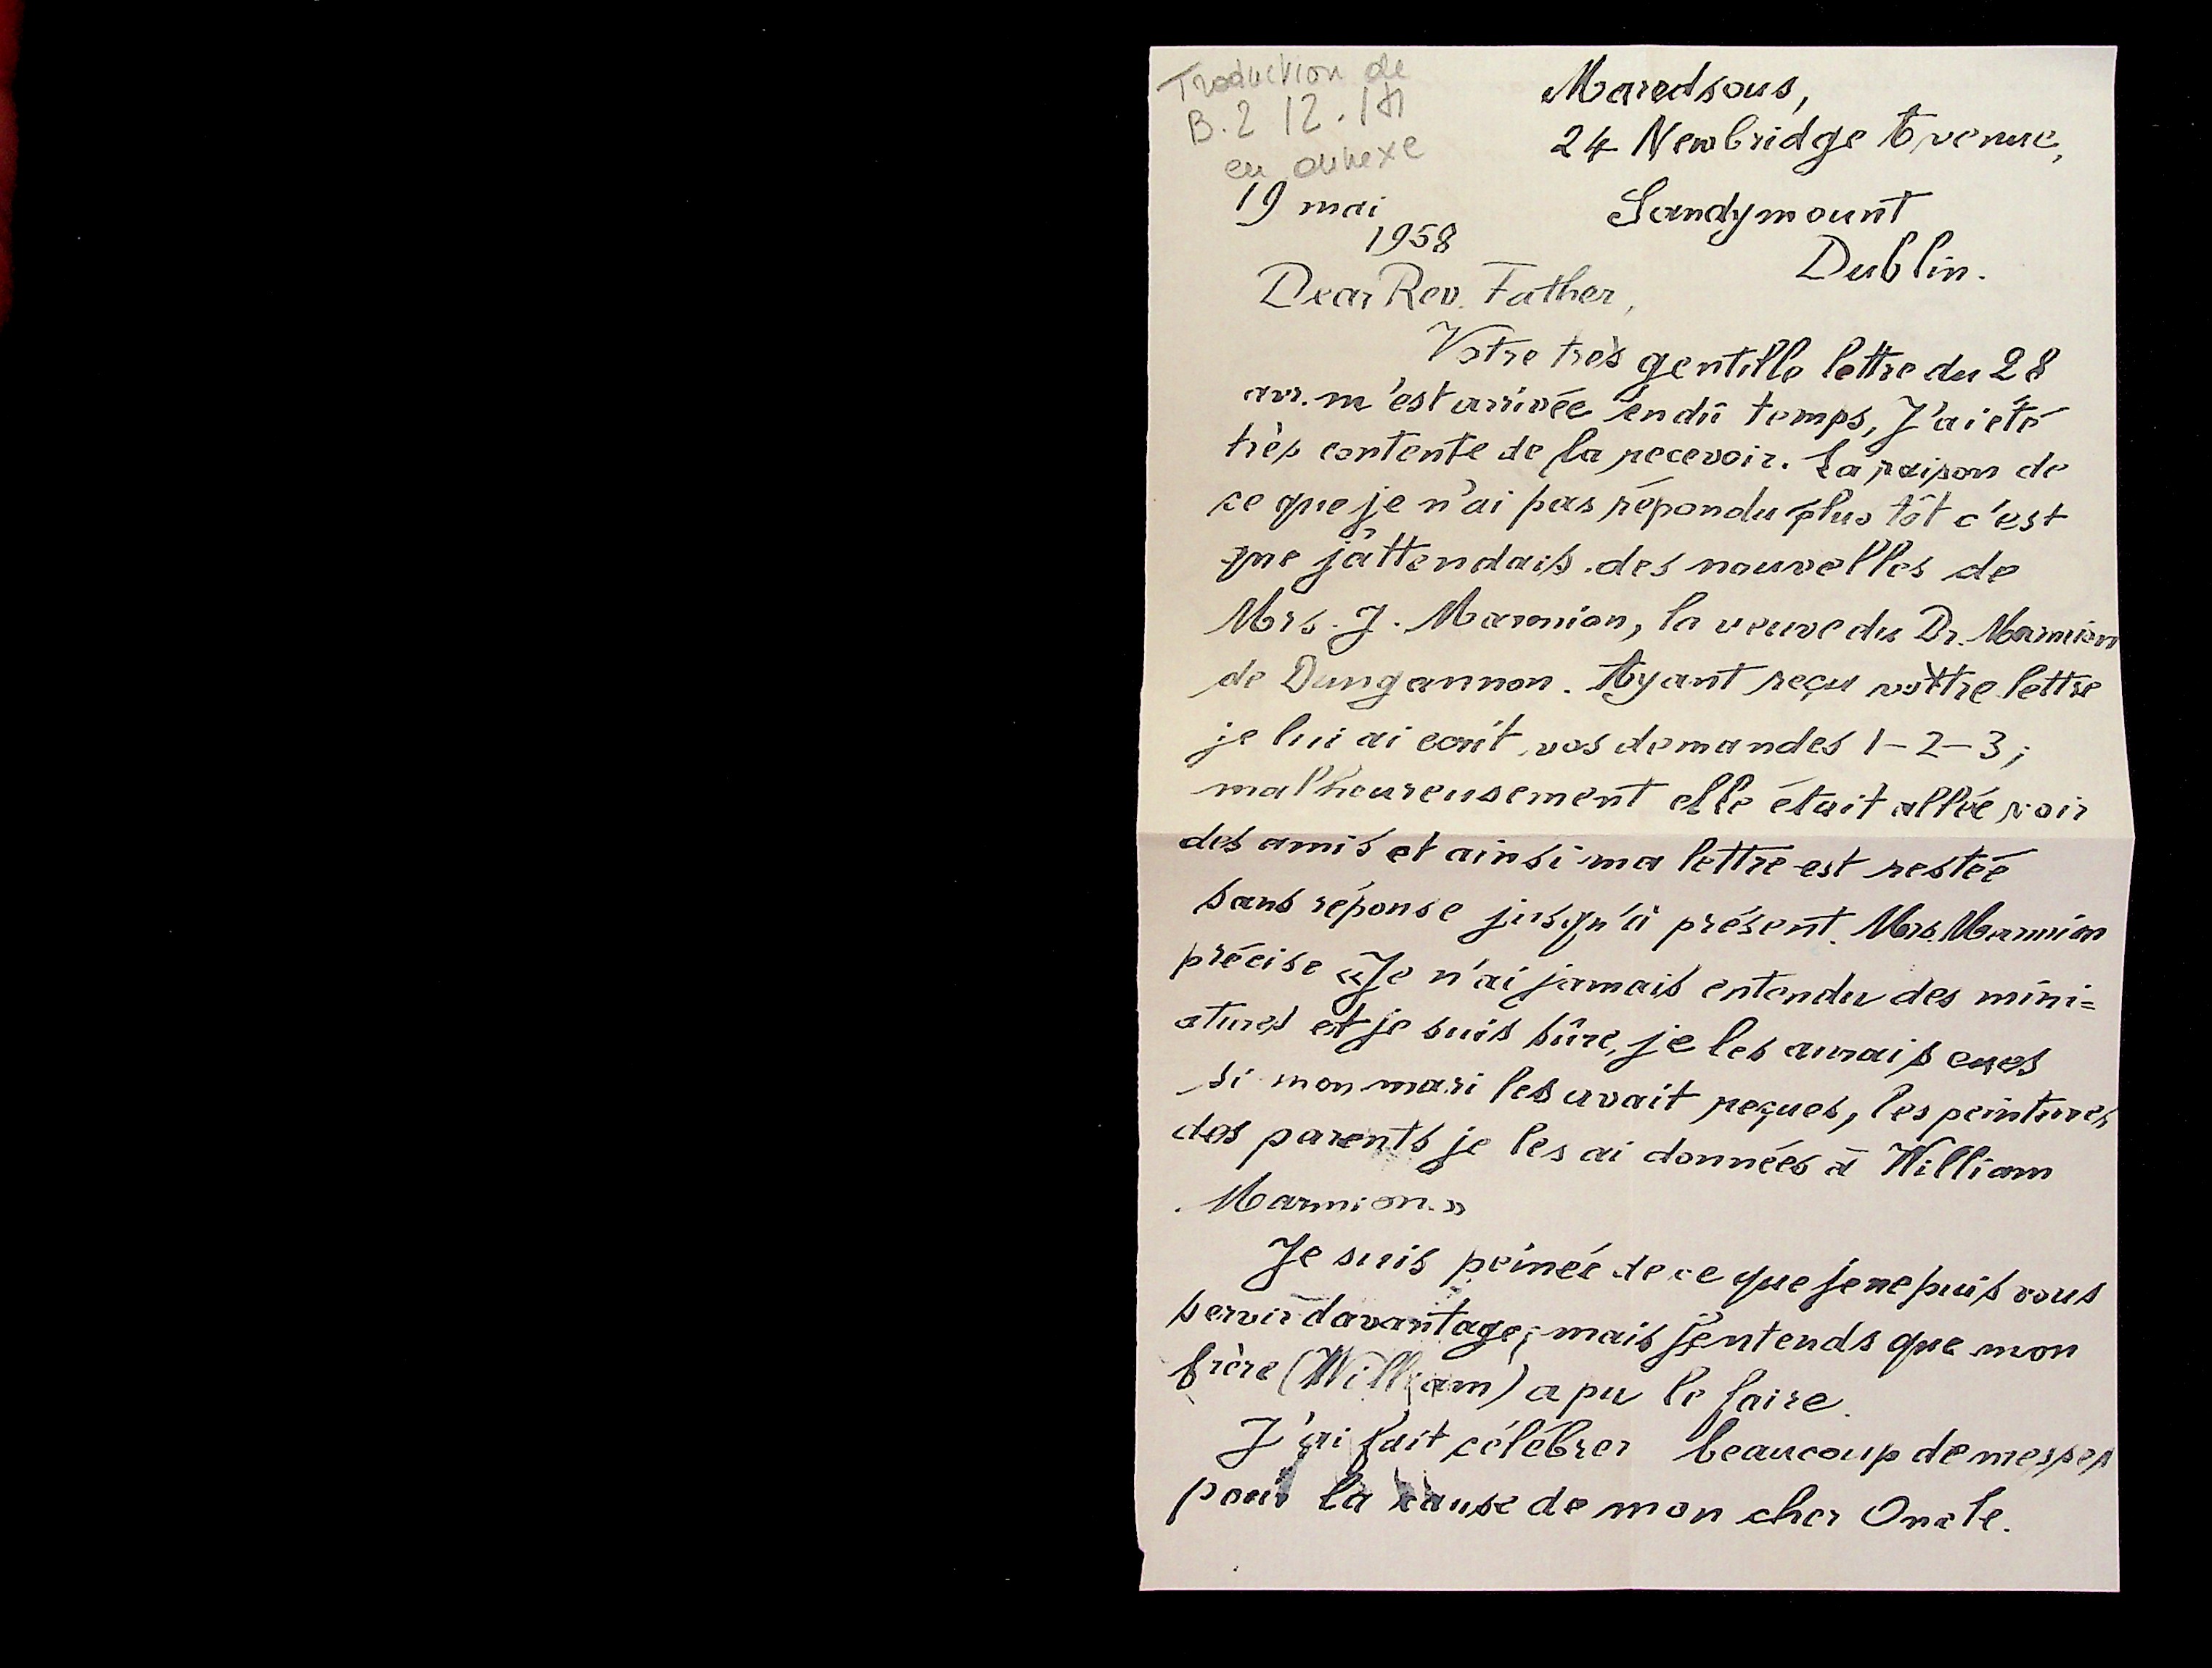 Traduction de
B. 2 12.
en annexe
Maredsous,
24 Newbridge Avenue,
19 mai
1958
Sandymount
Dublin.
Dear Rev. Father,
Votre très gentille lettre du 28
avr. m'est arrivée en dû temps, J'ai été
très contente de la recevoir. La raison de
ce que je n'ai pas répondu plus tôt c'est
que j'attendais des nouvelles de
Mrs. J. Marmion, la veuve du Dr. Marmion
de Dungannon. Ayant reçu vôtre lettre
je lui ai ecrit vos demandes 1-2-3;
malheureusement elle était allée voir
des amis et ainsi ma lettre est restée
sans réponse jusqu'à présent. Mrs. Marmion
précise «Je n'ai jamais entendu des mini=
atures et je suis sûre, je les aurais eues
si mon mari les avait reçues, les peintures
des parents je les ai données à William
Marmion.»
Je suis peinée de ce que je ne puis vous
servir davantage; mais j'entends que mon
frère (William) a pu le faire.
J'ai fait célébrer beaucoup de messes
pour la cause de mon cher Oncle.